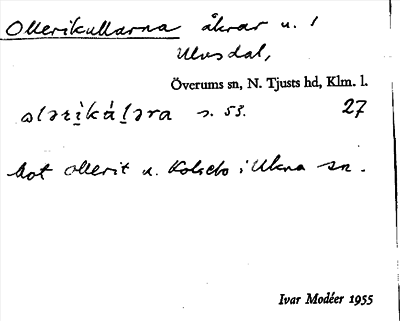 Ollerikullarna åkrar u. 1
Ulvsdal,
Överums sn, N. Tjusts hd, Klm. l.
27
s. 53.
hot Ollerit u. Kolsebo i Ukna sn.
Ivar Modéer 1955